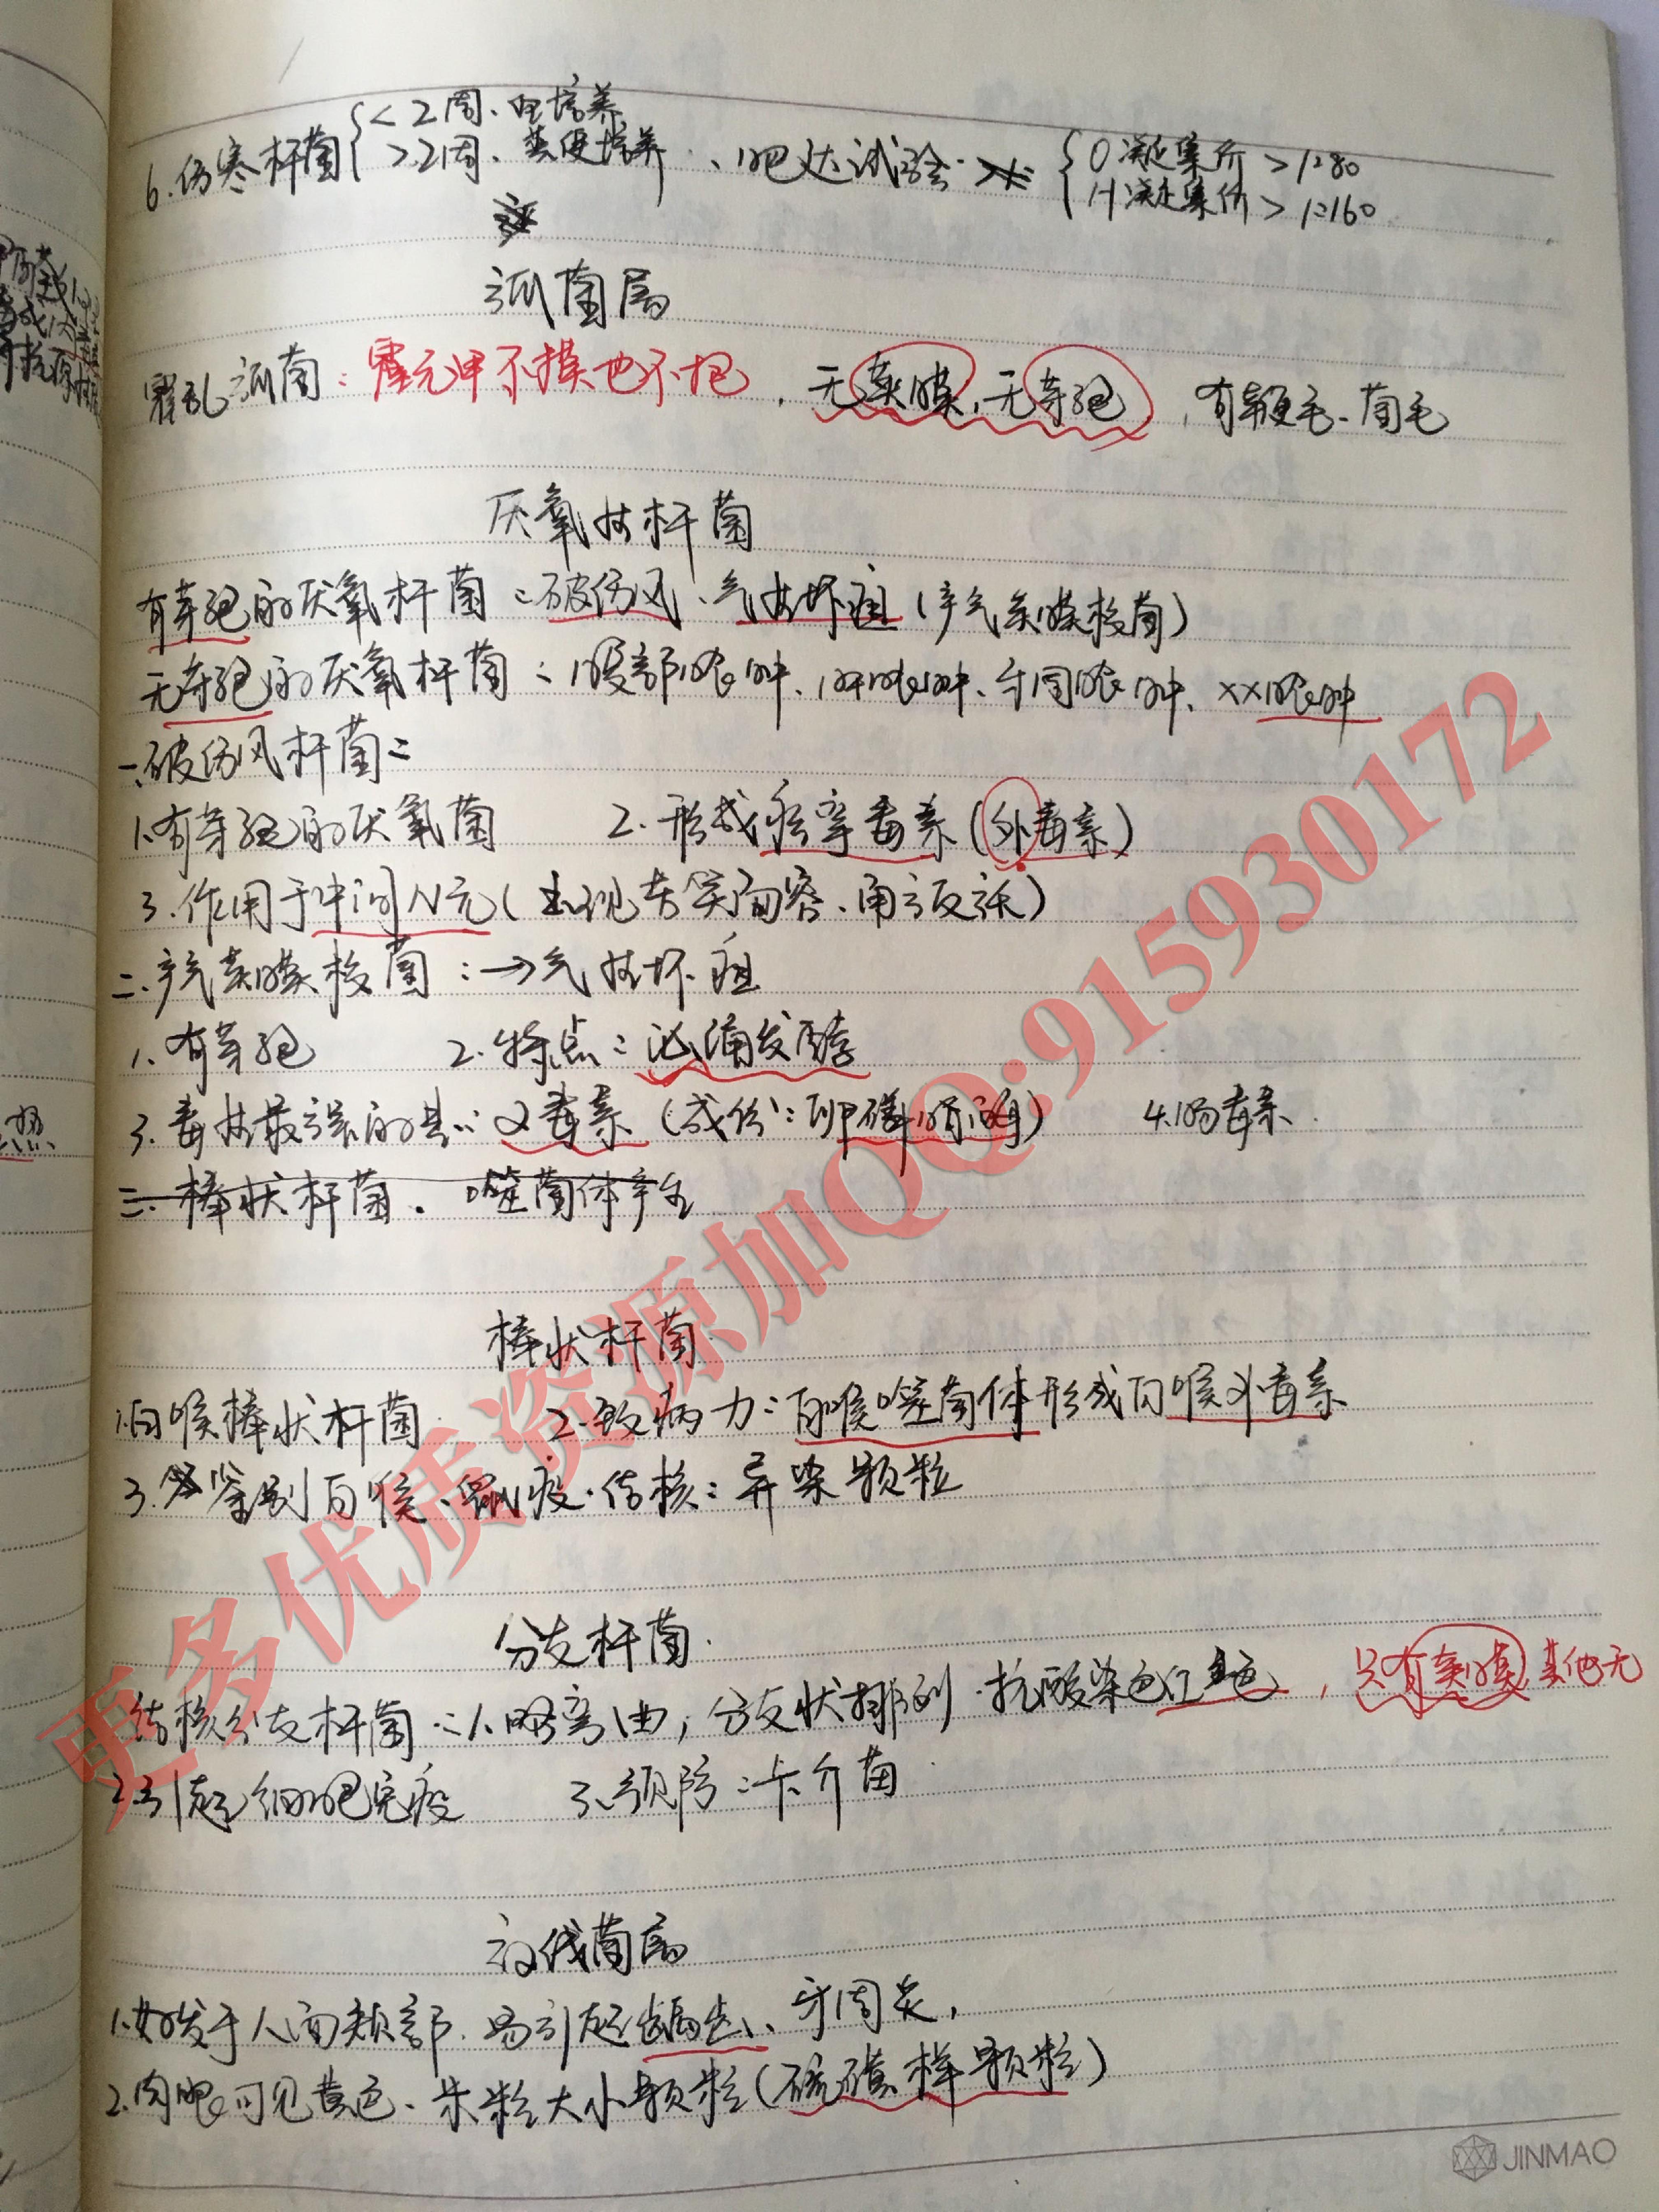 6.伤寒杆菌{<2周、血培养
>2周、粪便培养、肥达试验
{O凝集价>1:80
H凝集价>1:160
弧菌属
霍乱弧菌:霍元甲不摸也不抱,无荚膜,无芽孢,有鞭毛、菌毛
厌氧性杆菌
有芽孢的厌氧杆菌:破伤风、气性坏疽(产气荚膜梭菌)
无芽孢的厌氧杆菌:腹部脓肿、肝脓肿、牙周脓肿、××脓肿
一.破伤风杆菌:
1.有芽孢的厌氧菌 2.形成痉挛毒素(外毒素)
3.作用于中间N元(出现苦笑面容、角弓反张)
二.产气荚膜梭菌:→气性坏疽
1.有芽孢 2.特点:汹涌发酵
3.毒性最强的是:α毒素(成份:卵磷脂酶) 4.肠毒素.
三.棒状杆菌.噬菌体产生
棒状杆菌.
1.白喉棒状杆菌 2.致病力:白喉噬菌体形成白喉外毒素
3.鉴别白喉、鼠疫、结核:异染颗粒
分支杆菌.
结核分支杆菌:1.略弯曲,分支状排列.抗酸染色红色,只有荚膜其他无
2.引起细胞免疫 3.预防:卡介苗.
放线菌属
1.好发于人面颊部.易引起龋齿、牙周炎,
2.肉眼可见黄色、米粒大小颗粒(硫磺样颗粒)
更多优质资源加QQ:915930172
JINMAO